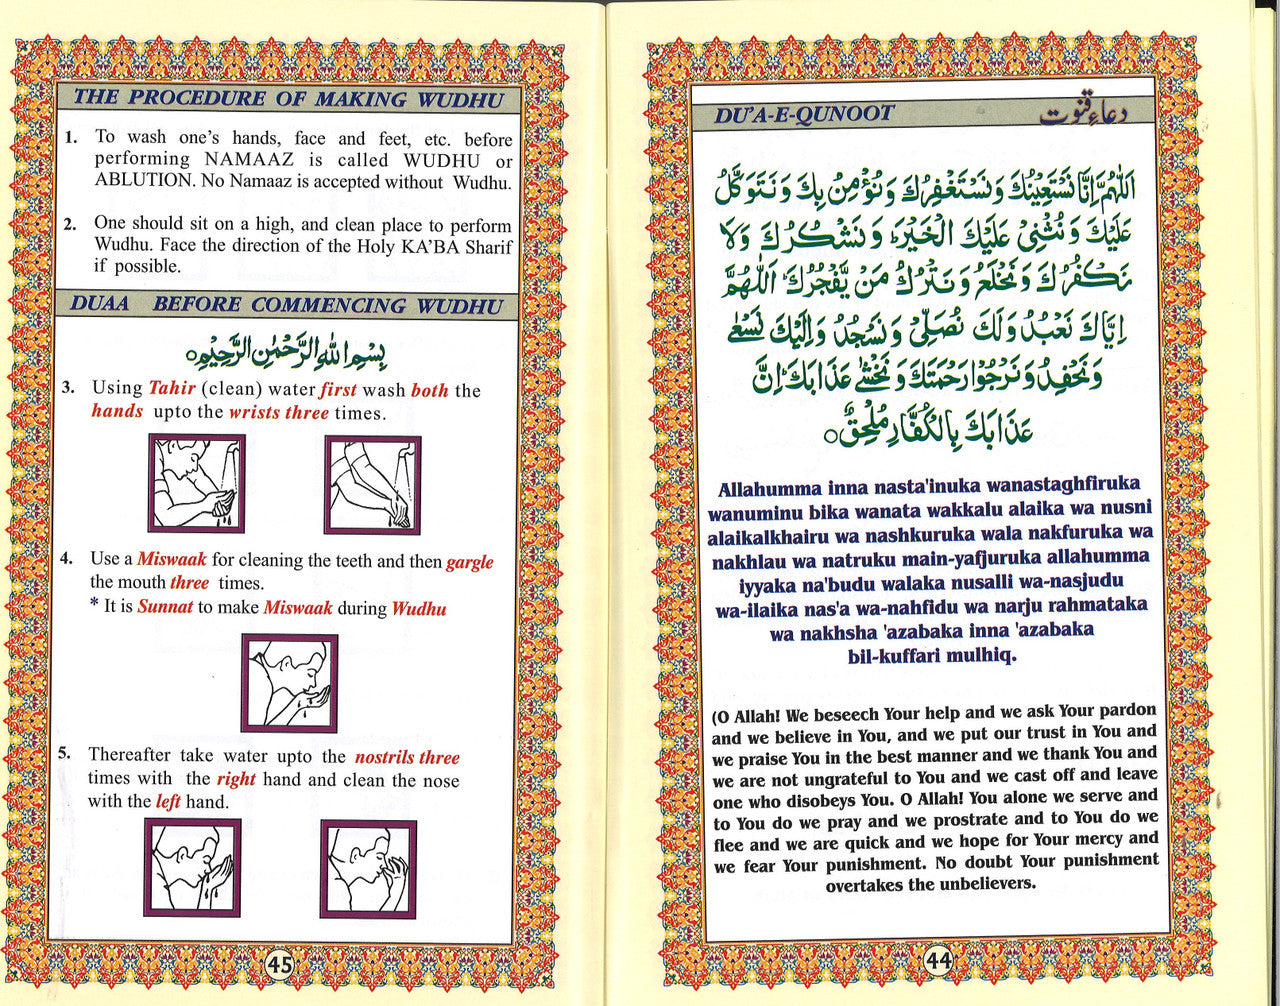 THE PROCEDURE OF MAKING WUDHU
1. To wash one's hands, face and feet, etc. before
performing NAMAAZ is called WUDHU or
ABLUTION. No Namaaz is accepted without Wudhu.
2. One should sit on a high, and clean place to perform
Wudhu. Face the direction of the Holy KA'BA Sharif
if possible.
DUAA BEFORE COMMENCING WUDHU
بِسْمِ اللهِ الرَّحْمٰنِ الرَّحِيْمِ○
3. Using Tahir (clean) water first wash both the
hands upto the wrists three times.
4. Use a Miswaak for cleaning the teeth and then gargle
the mouth three times.
* It is Sunnat to make Miswaak during Wudhu
5. Thereafter take water upto the nostrils three
times with the right hand and clean the nose
with the left hand.
45
DU'A-E-QUNOOT دعاءِ قنوت
اَللّٰهُمَّ اِنَّا نَسْتَعِيْنُكَ وَنَسْتَغْفِرُكَ وَنُؤْمِنُ بِكَ وَنَتَوَكَّلُ
عَلَيْكَ وَنُثْنِيْ عَلَيْكَ الْخَيْرَ وَنَشْكُرُكَ وَلَا
نَكْفُرُكَ وَنَخْلَعُ وَنَتْرُكُ مَنْ يَّفْجُرُكَ اَللّٰهُمَّ
اِيَّاكَ نَعْبُدُ وَلَكَ نُصَلِّيْ وَنَسْجُدُ وَاِلَيْكَ نَسْعٰى
وَنَحْفِدُ وَنَرْجُوْا رَحْمَتَكَ وَنَخْشٰى عَذَابَكَ اِنَّ
عَذَابَكَ بِالْكُفَّارِ مُلْحِقٌ○
Allahumma inna nasta'inuka wanastaghfiruka
wanuminu bika wanata wakkalu alaika wa nusni
alaikalkhairu wa nashkuruka wala nakfuruka wa
nakhlau wa natruku main-yafjuruka allahumma
iyyaka na'budu walaka nusalli wa-nasjudu
wa-ilaika nas'a wa-nahfidu wa narju rahmataka
wa nakhsha 'azabaka inna 'azabaka
bil-kuffari mulhiq.
(O Allah! We beseech Your help and we ask Your pardon
and we believe in You, and we put our trust in You and
we praise You in the best manner and we thank You and
we are not ungrateful to You and we cast off and leave
one who disobeys You. O Allah! You alone we serve and
to You do we pray and we prostrate and to You do we
flee and we are quick and we hope for Your mercy and
we fear Your punishment. No doubt Your punishment
overtakes the unbelievers.
44